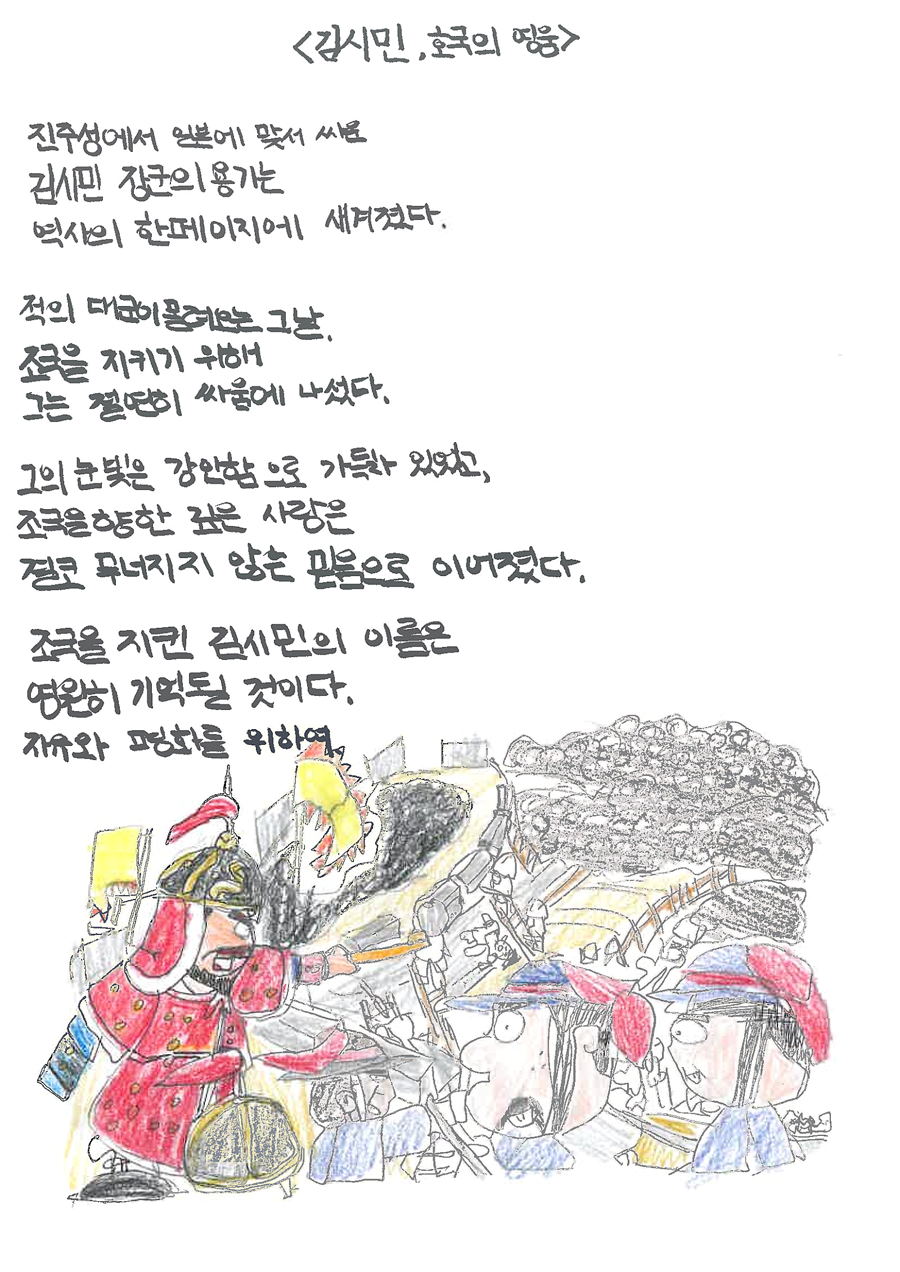 <김시민, 호국의 영웅>
진주성에서 일본에 맞서 싸운
김시민 장군의 용기는
역사의 한페이지에 새겨졌다.
적의 대군이 몰려오는 그날,
조국을 지키기 위해
그는 결연히 싸움에 나섰다.
그의 눈빛은 강인함으로 가득차 있었고,
조국을 향한 깊은 사랑은
결코 무너지지 않는 믿음으로 이어졌다.
조국을 지킨 김시민의 이름은
영원히 기억될 것이다.
자유와 평화를 위하여.